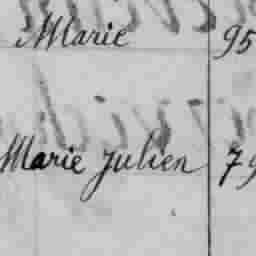 Marie 95
Marie Julien 79